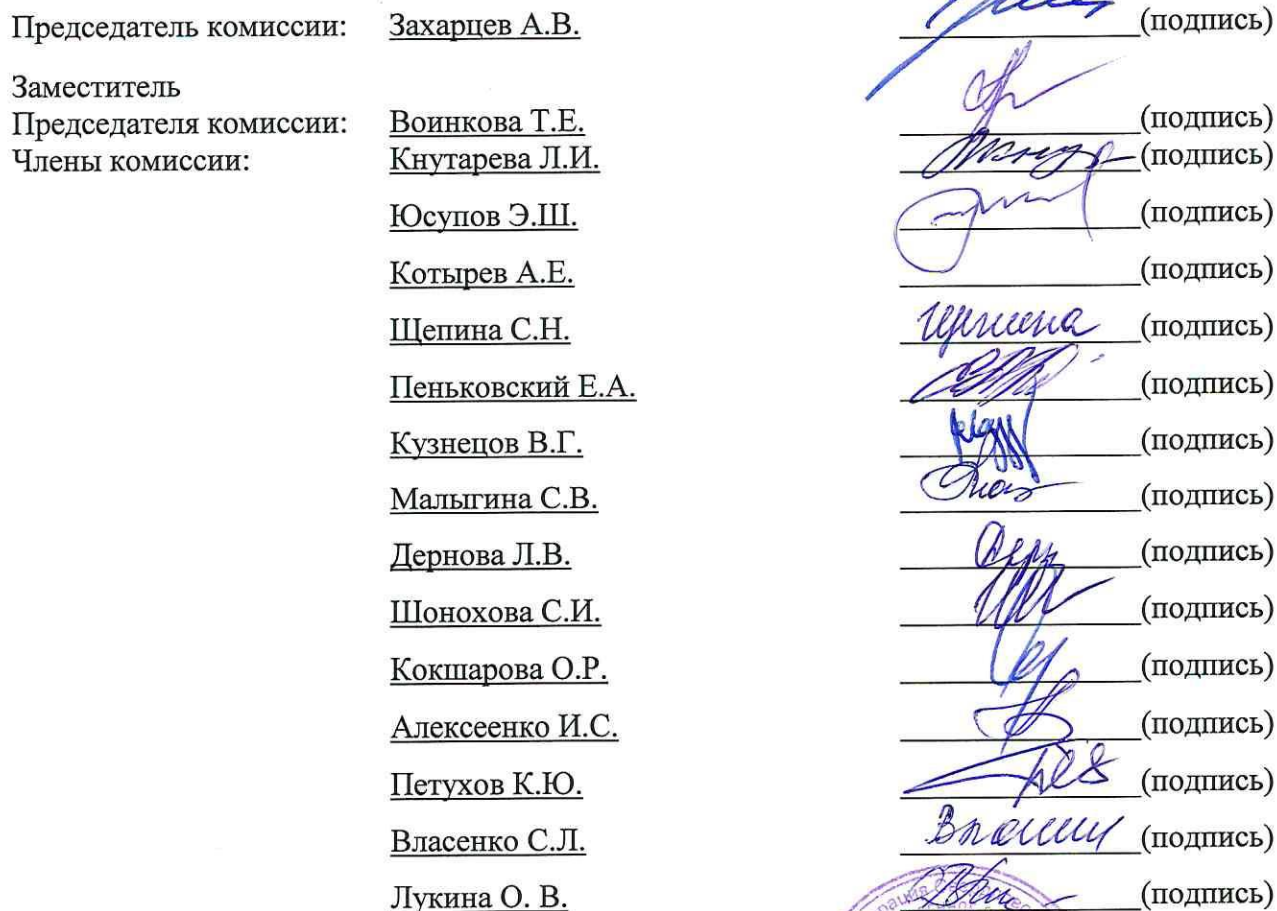 Председатель комиссии: Захарцев А.В. (подпись)
Заместитель
Председателя комиссии: Воинкова Т.Е. (подпись)
Члены комиссии: Кнутарева Л.И. (подпись)
Юсупов Э.Ш. (подпись)
Котырев А.Е. (подпись)
Щепина С.Н. (подпись)
Пеньковский Е.А. (подпись)
Кузнецов В.Г. (подпись)
Малыгина С.В. (подпись)
Дернова Л.В. (подпись)
Шонохова С.И. (подпись)
Кокшарова О.Р. (подпись)
Алексеенко И.С. (подпись)
Петухов К.Ю. (подпись)
Власенко С.Л. (подпись)
Лукина О. В. (подпись)